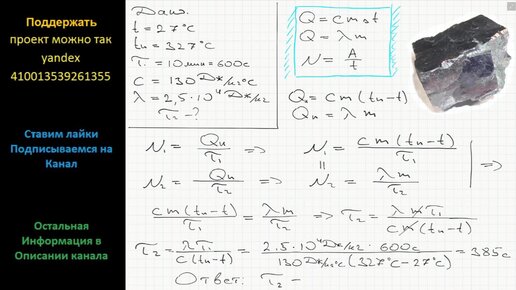 Поддержать
проект можно так
yandex
410013539261355
Ставим лайки
Подписываемся на
Канал
Остальная
Информация в
Описании канала
Дано:
t = 27°C
tп = 327°C
τ₁ = 10 мин = 600с
C = 130 Дж/кг°C
λ = 2,5·10⁴ Дж/кг
τ₂ - ?
Q = c m Δt
Q = λ m
N = A/t
Qн = c m (tп - t)
Qп = λ m
N₁ = Qн/τ₁ => N₁ = c m (tп - t)/τ₁
=>
N₂ = Qп/τ₂ => N₂ = λ m/τ₂
c m (tп - t)/τ₁ = λ m/τ₂ => τ₂ = λ m τ₁/c m (tп - t)
τ₂ = λ τ₁/c(tп - t) = 2,5·10⁴ Дж/кг · 600с/130 Дж/кг°C (327°C - 27°C) = 385с
Ответ: τ₂ =